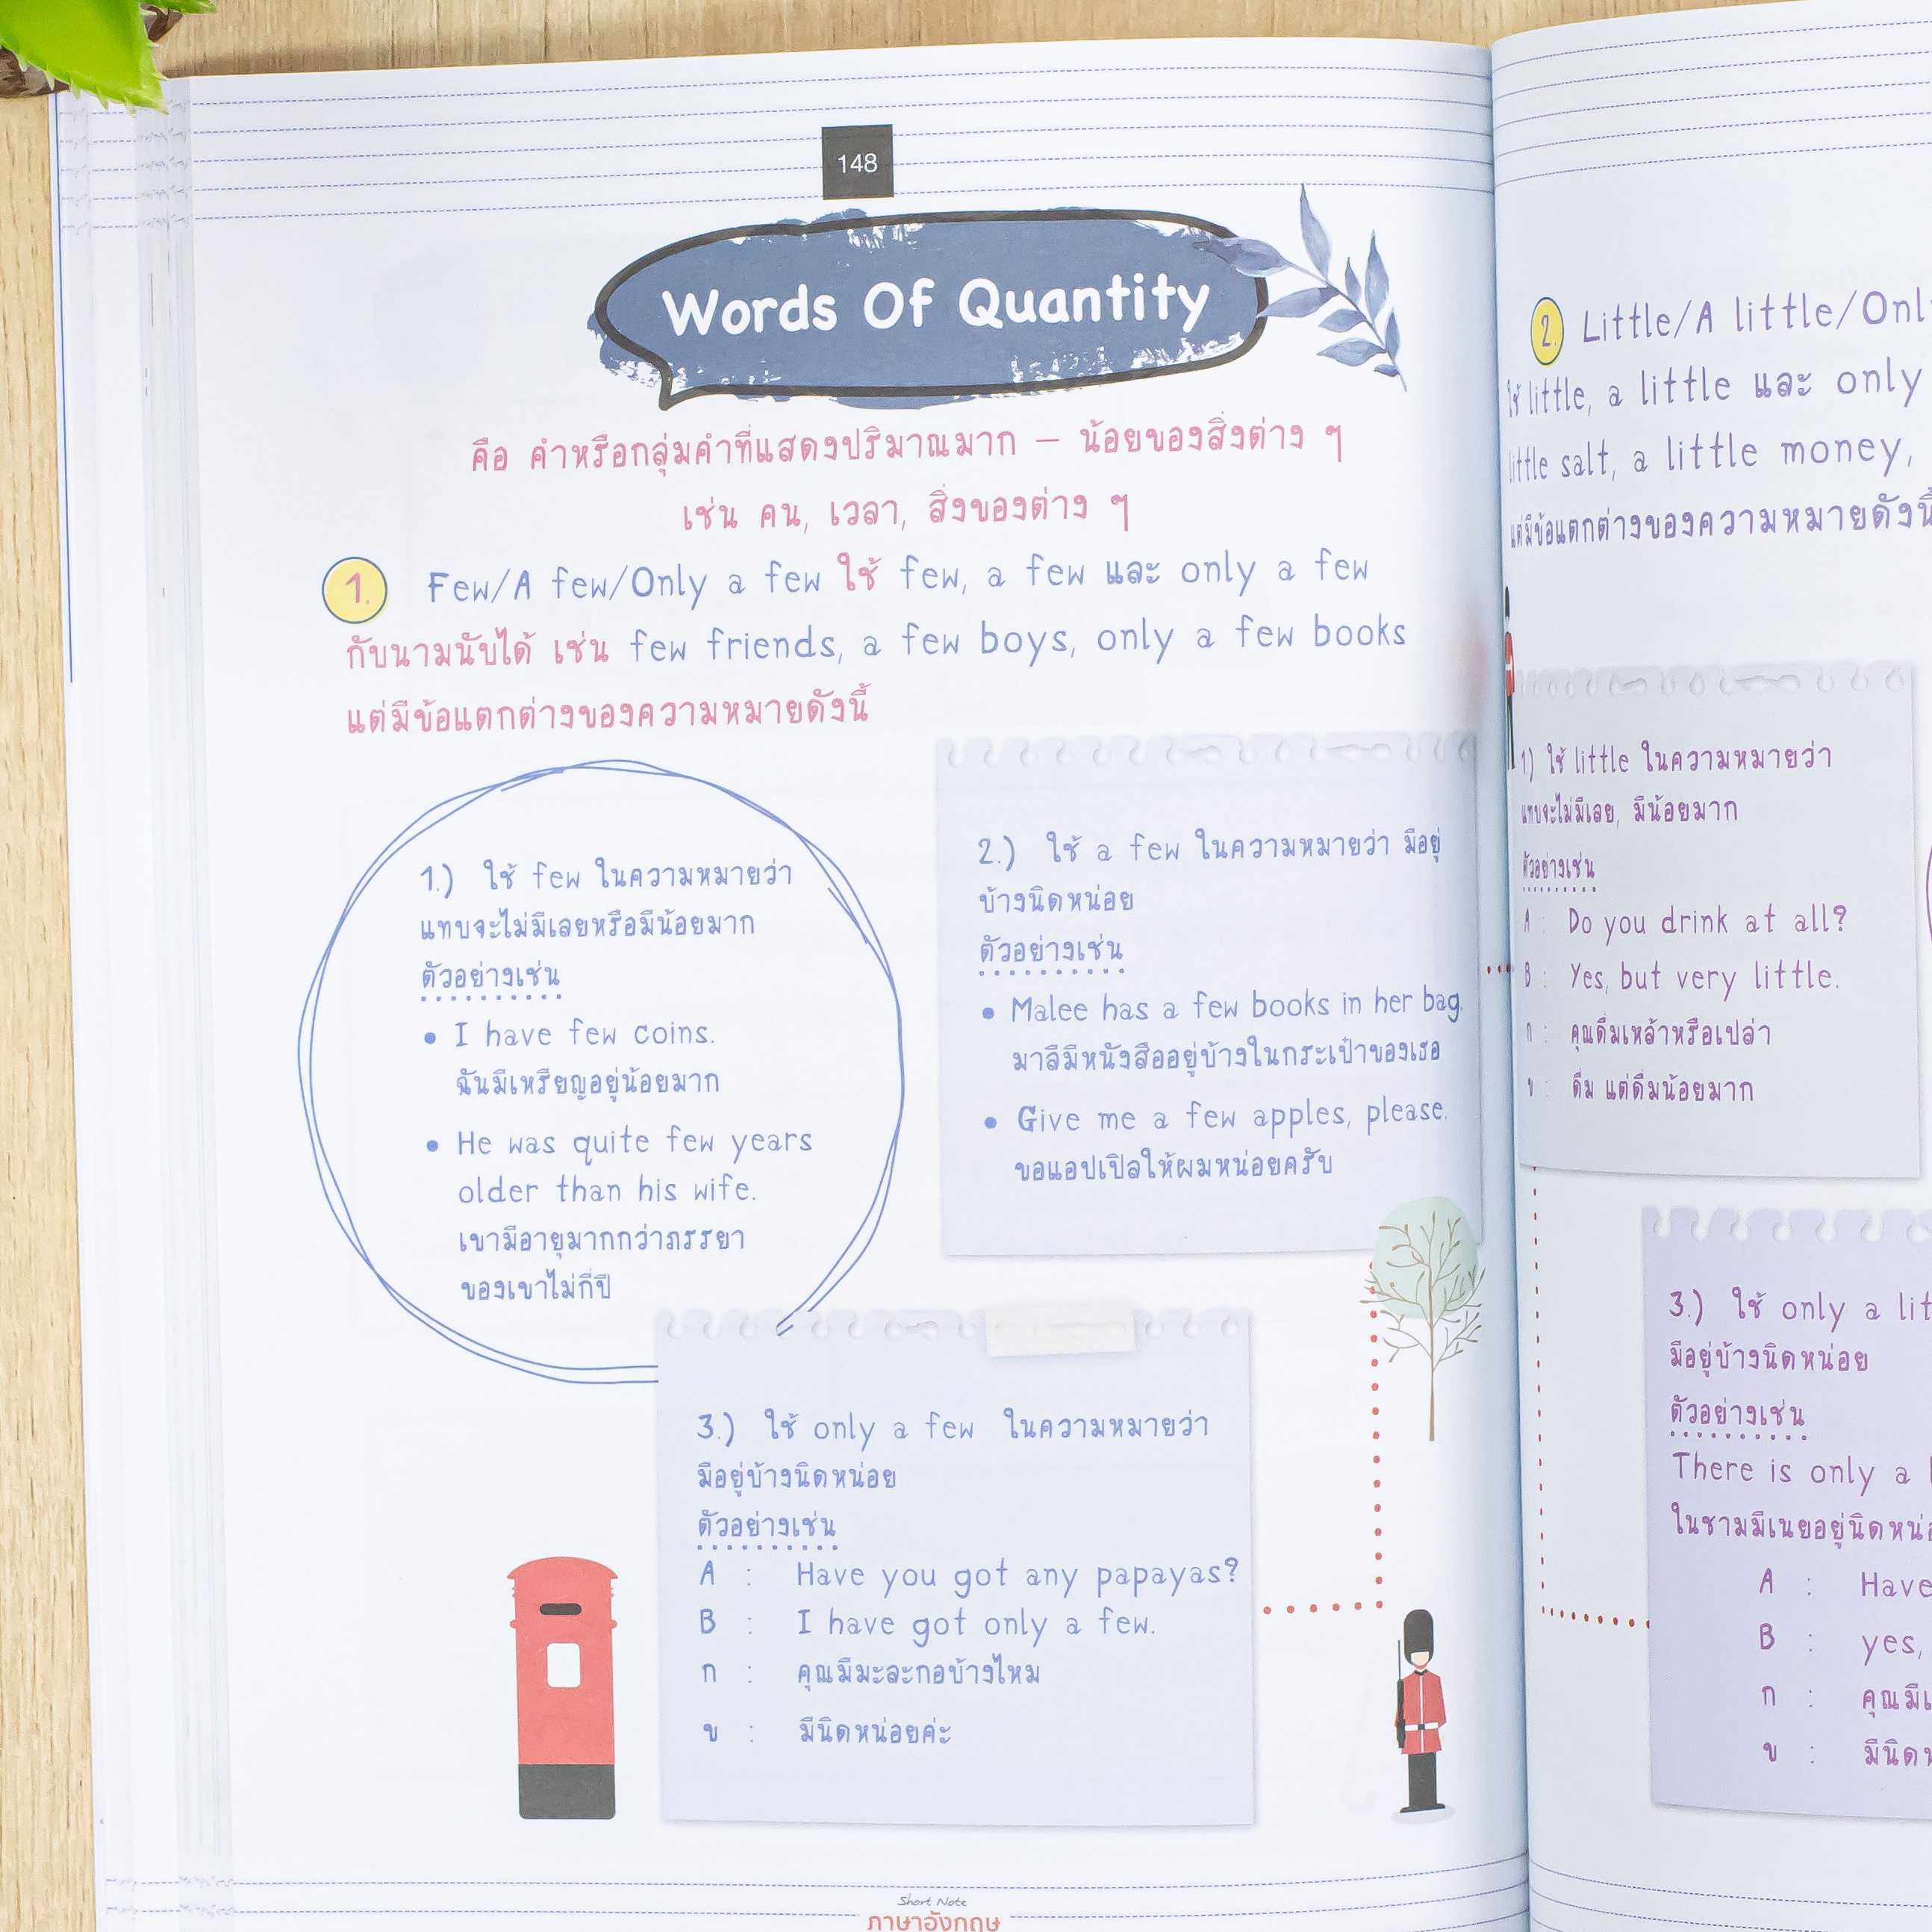 148
Words Of Quantity
คือ คำหรือกลุ่มคำที่แสดงปริมาณมาก – น้อยของสิ่งต่าง ๆ
เช่น คน, เวลา, สิ่งของต่าง ๆ
1. Few/A few/Only a few ใช้ few, a few และ only a few
กับนามนับได้ เช่น few friends, a few boys, only a few books
แต่มีข้อแตกต่างของความหมายดังนี้
1.) ใช้ few ในความหมายว่า
แทบจะไม่มีเลยหรือมีน้อยมาก
ตัวอย่างเช่น
• I have few coins.
ฉันมีเหรียญอยู่น้อยมาก
• He was quite few years
older than his wife.
เขามีอายุมากกว่าภรรยา
ของเขาไม่กี่ปี
2.) ใช้ a few ในความหมายว่า มีอยู่
บ้างนิดหน่อย
ตัวอย่างเช่น
• Malee has a few books in her bag.
มาลีมีหนังสืออยู่บ้างในกระเป๋าของเธอ
• Give me a few apples, please.
ขอแอปเปิลให้ผมหน่อยครับ
3.) ใช้ only a few ในความหมายว่า
มีอยู่บ้างนิดหน่อย
ตัวอย่างเช่น
A : Have you got any papayas?
B : I have got only a few.
ก : คุณมีมะละกอบ้างไหม
ข : มีนิดหน่อยค่ะ
Short Note
ภาษาอังกฤษ
2. Little/A little/Only
ใช้ little, a little และ only
little salt, a little money,
แต่มีข้อแตกต่างของความหมายดังนี้
1) ใช้ little ในความหมายว่า
แทบจะไม่มีเลย, มีน้อยมาก
ตัวอย่างเช่น
A : Do you drink at all?
B : Yes, but very little.
ก : คุณดื่มเหล้าหรือเปล่า
ข : ดื่ม แต่ดื่มน้อยมาก
3.) ใช้ only a lit
มีอยู่บ้างนิดหน่อย
ตัวอย่างเช่น
There is only a
ในชามมีเนยอยู่นิดหน่
A : Have
B : yes,
ก : คุณมี
ข : มีนิด